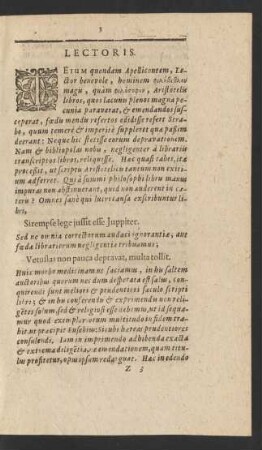 LECTORIS.
TEIUM quondam Apelliconem, Le-
ctor beneuole, hominem φιλόβιβλον
magis, quàm φιλόσοφον, Aristotelis
libros, quos lacunis plenos magna pe-
cunia parauerat, & emendandos sus-
ceperat, fœdis mendis refertos edidisse refert Stra-
bo, quum temerè & imperitè suppleret quæ passim
deerant: Neque hic stetisse eorum deprauationem.
Nam & bibliopolas malos, negligenter à librariis
transcriptos libros, reliquisse. Hac quasi tabes, ita
processit, ut scriptis Aristotelis tantum non exi-
tium adferret. Quòd si summi philosophi libris manus
impuras non abstinuerant, quid non auderent in cæ-
teris? Omnes ianè qui lucri causa exscribuntur li-
bri,
Sirempse lege iussit esse Juppiter.
Sed ne omnia correctorum audaci ignorantiæ, aut
fœdæ librariorum negligentiæ tribuamus;
Vetustas non pauca deprauat, multa tollit.
Huic morbo medicinam ut faciamus, in his saltem
auctoribus quorum nec dum desperata est salus, con-
quirendi sunt meliori & prudentiori sæculo scripti
libri; & in his conferendis & exprimendis non reli-
gētes solum, sed & religiosi esse debemus, ut id sequa-
mur quod exemplarium multitudo in fidem trahe-
bat, ut præcipit Eusebius: ubi hærens prudentiores
consulendi. Tam in imprimendo adhibenda exacta
& extrema diligētia, ac emendationem, quam titu-
lus profitetur, opus ipsum redarguat. Hac in edendo
Z 3